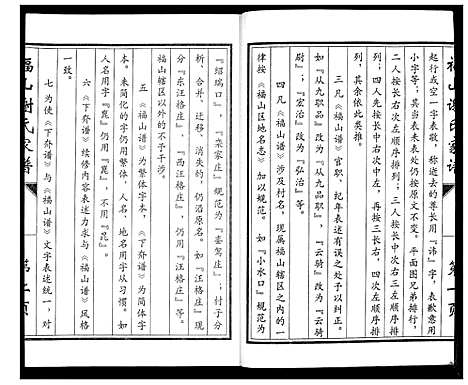 起行或空一字表敬，称逝去的尊长用『讳』字，表歉意用
小字等；其当表未表处仍按原文不变。平面图兄弟排行，
二人按长右次左顺序排列；三人按长中次右三左顺序排
列；四人先按长中右次中左，后按三右、四次左顺序排
列，其余依此类推。
三 凡《福山谱》官职、纪年表述有误之处予以纠正。
如『从九职品』改为『从九品职』，『云骑』改为『云骑
尉』；『宏治』改为『弘治』等。
四 凡《福山谱》涉及村名，现属福山辖区之内的一
律按《福山区地名志》加以规范。如『小水口』规范为
『绍瑞口』，『栾家庄』规范为『銮驾庄』；村子分
析、合并、迁移、消失的，仍沿原名。如『汪格庄』现
分『东汪格庄』、『西汪格庄』，仍用『汪格庄』等。
福山辖区以外的不予干涉。
五 《福山谱》为繁体字本，《下夼谱》为简体字
本。未简化的字仍用繁体，人名，地名用字从习惯。如
人名用字『崑』，仍用『崑』，不用『昆』。
六 《下夼谱》续修内容表述力求与《福山谱》风格
一致。
七 为使《下夼谱》与《福山谱》文字表述统一，对
福山谢氏家谱
第二页
福山谢氏家谱
第一页